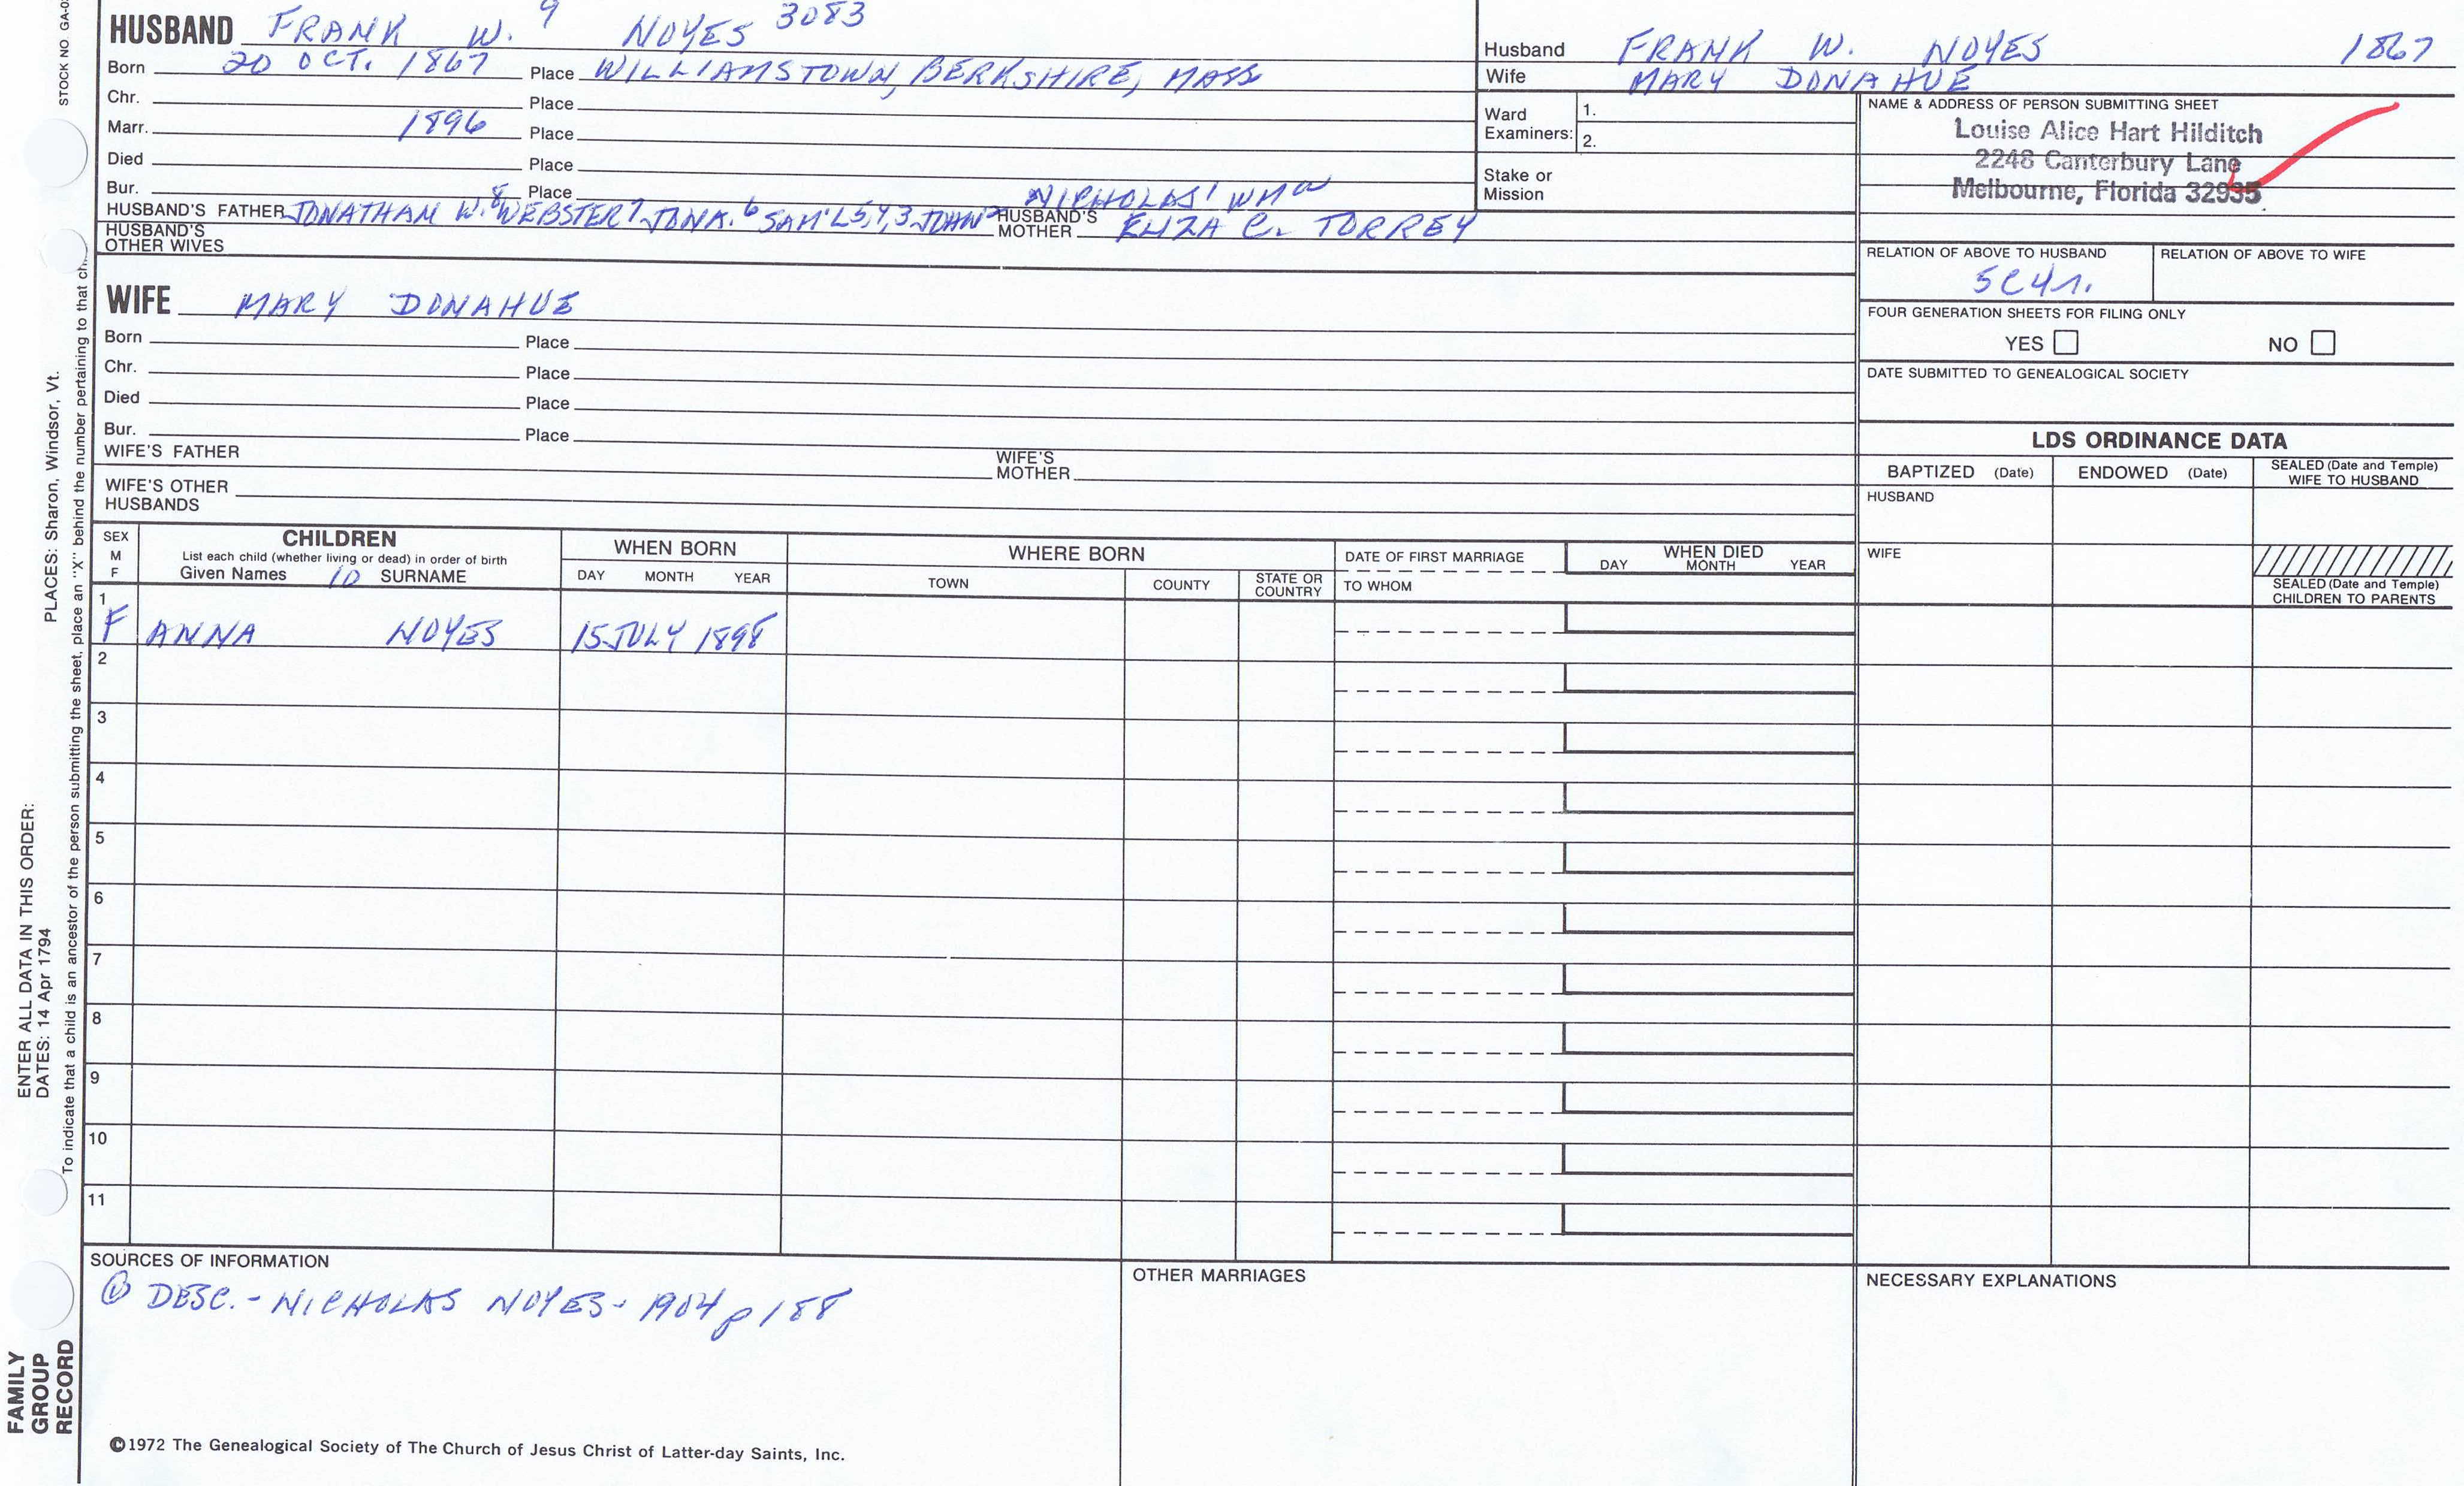 STOCK NO. GA-0
HUSBAND FRANK W. 9 NOYES 3083
Born 20 OCT. 1867 Place WILLIAMSTOWN, BERKSHIRE, MASS
Chr. Place
Marr. 1896 Place
Died Place
Bur. Place
NICHOLAS 1 WM a
HUSBAND'S FATHER JONATHAM W. 8 WEBSTER 7 JONA. 6 SAM'L 5,4,3 JOHN 2 HUSBAND'S MOTHER ELIZA C. TORREY
HUSBAND'S OTHER WIVES
WIFE MARY DONAHUE
Born Place
Chr. Place
Died Place
Bur. Place
WIFE'S FATHER WIFE'S MOTHER
WIFE'S OTHER HUSBANDS
Husband FRANK W. NOYES 1867
Wife MARY DONAHUE
Ward Examiners: 1.
2.
Stake or Mission
NAME & ADDRESS OF PERSON SUBMITTING SHEET
Louise Alice Hart Hilditch
2248 Canterbury Lane
Melbourne, Florida 32935
RELATION OF ABOVE TO HUSBAND RELATION OF ABOVE TO WIFE
5C4r.
FOUR GENERATION SHEETS FOR FILING ONLY
YES NO
DATE SUBMITTED TO GENEALOGICAL SOCIETY
LDS ORDINANCE DATA
BAPTIZED (Date) ENDOWED (Date) SEALED (Date and Temple) WIFE TO HUSBAND
HUSBAND
WIFE
SEALED (Date and Temple) CHILDREN TO PARENTS
SEX M F
CHILDREN
List each child (whether living or dead) in order of birth
Given Names 10 SURNAME
WHEN BORN
DAY MONTH YEAR
WHERE BORN
TOWN COUNTY STATE OR COUNTRY
DATE OF FIRST MARRIAGE
TO WHOM
WHEN DIED
DAY MONTH YEAR
1 F ANNA NOYES 15 JULY 1898
2
3
4
5
6
7
8
9
10
11
SOURCES OF INFORMATION
① DESC. - NICHOLAS NOYES - 1904 p 188
OTHER MARRIAGES
NECESSARY EXPLANATIONS
©1972 The Genealogical Society of The Church of Jesus Christ of Latter-day Saints, Inc.
FAMILY
GROUP
RECORD
ENTER ALL DATA IN THIS ORDER:
DATES: 14 Apr 1794 PLACES: Sharon, Windsor, Vt.
To indicate that a child is an ancestor of the person submitting the sheet, place an "X" behind the number pertaining to that ch